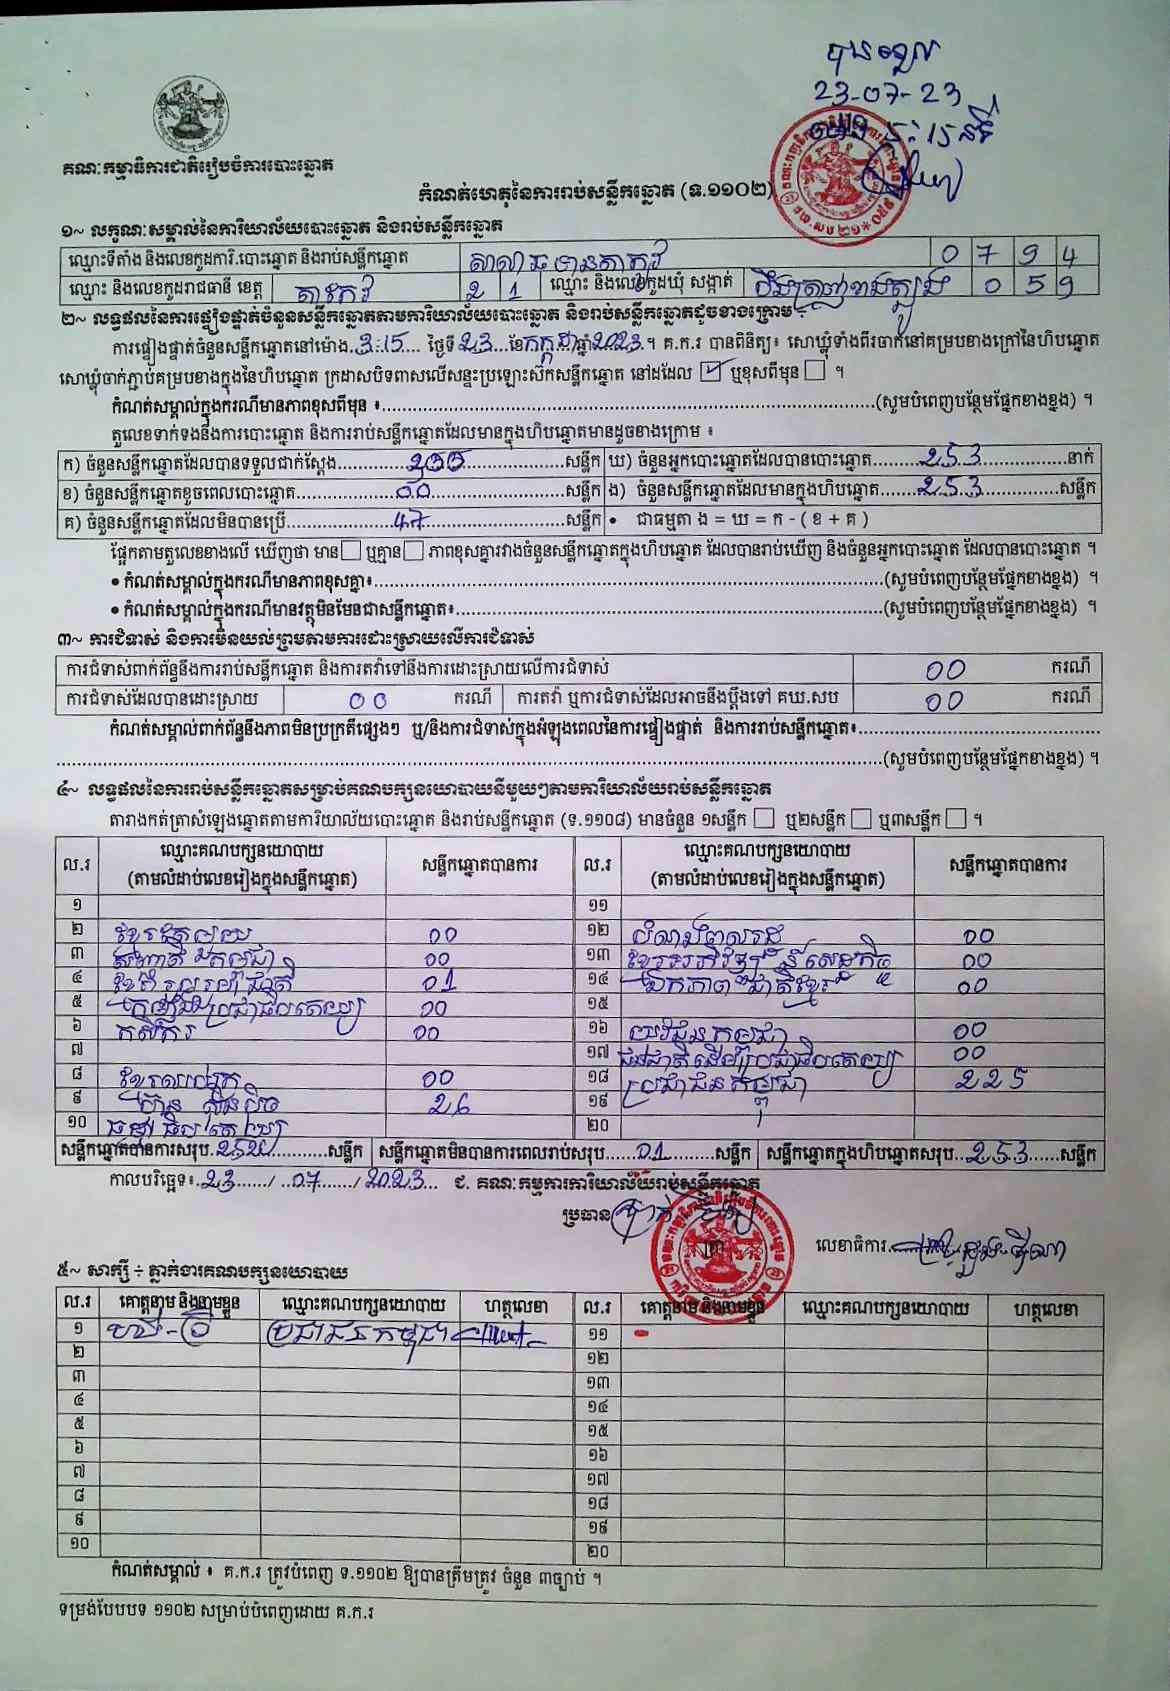 បានឃើញ
23-07-23
គណៈកម្មាធិការជាតិរៀបចំការបោះឆ្នោត
កំណត់ហេតុនៃការរាប់សន្លឹកឆ្នោត (ទ.១១០២)
១~ លក្ខណៈសម្គាល់នៃការិយាល័យបោះឆ្នោត និងរាប់សន្លឹកឆ្នោត
ឈ្មោះទីតាំង និងលេខកូដការិ.បោះឆ្នោត និងរាប់សន្លឹកឆ្នោត 0 7 9 4
ឈ្មោះ និងលេខកូដរាជធានី ខេត្ត តាកែវ 2 1 ឈ្មោះ និងលេខកូដឃុំ សង្កាត់ បឹងត្រាញ់ខាងត្បូង 0 5 9
២~ លទ្ធផលនៃការផ្ទៀងផ្ទាត់ចំនួនសន្លឹកឆ្នោតតាមការិយាល័យបោះឆ្នោត និងរាប់សន្លឹកឆ្នោតដូចខាងក្រោម ÷
ការផ្ទៀងផ្ទាត់ចំនួនសន្លឹកឆ្នោតនៅម៉ោង 3:15 ថ្ងៃទី 23 ខែ កក្កដា ឆ្នាំ 2023 ។ គ.ក.រ បានពិនិត្យ៖ សោឃ្លុំទាំងពីរចាក់នៅគម្របខាងក្រៅនៃហិបឆ្នោត
សោឃ្លុំចាក់ភ្ជាប់គម្របខាងក្នុងនៃហិបឆ្នោត ក្រដាសបិទពាសលើសន្ទះប្រឡោះស៊កសន្លឹកឆ្នោត នៅដដែល ☑ ឬខុសពីមុន ☐ ។
កំណត់សម្គាល់ក្នុងករណីមានភាពខុសពីមុន ៖ (សូមបំពេញបន្ថែមផ្នែកខាងខ្នង) ។
តួលេខទាក់ទងនឹងការបោះឆ្នោត និងការរាប់សន្លឹកឆ្នោតដែលមានក្នុងហិបឆ្នោតមានដូចខាងក្រោម ៖
ក) ចំនួនសន្លឹកឆ្នោតដែលបានទទួលជាក់ស្តែង 300 សន្លឹក ឃ) ចំនួនអ្នកបោះឆ្នោតដែលបានបោះឆ្នោត 253 នាក់
ខ) ចំនួនសន្លឹកឆ្នោតខូចពេលបោះឆ្នោត 00 សន្លឹក ង) ចំនួនសន្លឹកឆ្នោតដែលមានក្នុងហិបឆ្នោត 253 សន្លឹក
គ) ចំនួនសន្លឹកឆ្នោតដែលមិនបានប្រើ 47 សន្លឹក • ជាធម្មតា ង = ឃ = ក - ( ខ + គ )
ផ្អែកតាមតួលេខខាងលើ ឃើញថា មាន ☐ ឬគ្មាន ☐ ភាពខុសគ្នារវាងចំនួនសន្លឹកឆ្នោតក្នុងហិបឆ្នោត ដែលបានរាប់ឃើញ និងចំនួនអ្នកបោះឆ្នោត ដែលបានបោះឆ្នោត ។
• កំណត់សម្គាល់ក្នុងករណីមានភាពខុសគ្នា៖ (សូមបំពេញបន្ថែមផ្នែកខាងខ្នង) ។
• កំណត់សម្គាល់ក្នុងករណីមានវត្ថុមិនមែនជាសន្លឹកឆ្នោត៖ (សូមបំពេញបន្ថែមផ្នែកខាងខ្នង) ។
៣~ ការជំទាស់ និងការមិនយល់ព្រមតាមការដោះស្រាយលើការជំទាស់
ការជំទាស់ពាក់ព័ន្ធនឹងការរាប់សន្លឹកឆ្នោត និងការតវ៉ាទៅនឹងការដោះស្រាយលើការជំទាស់ 00 ករណី
ការជំទាស់ដែលបានដោះស្រាយ 00 ករណី ការតវ៉ា ឬការជំទាស់ដែលអាចនឹងប្តឹងទៅ គឃ.សប 00 ករណី
កំណត់សម្គាល់ពាក់ព័ន្ធនឹងភាពមិនប្រក្រតីផ្សេងៗ ឬ/និងការជំទាស់ក្នុងអំឡុងពេលនៃការផ្ទៀងផ្ទាត់ និងការរាប់សន្លឹកឆ្នោត៖
(សូមបំពេញបន្ថែមផ្នែកខាងខ្នង) ។
៤~ លទ្ធផលនៃការរាប់សន្លឹកឆ្នោតសម្រាប់គណបក្សនយោបាយនីមួយៗតាមការិយាល័យរាប់សន្លឹកឆ្នោត
តារាងកត់ត្រាសំឡេងឆ្នោតតាមការិយាល័យបោះឆ្នោត និងរាប់សន្លឹកឆ្នោត (ទ.១១០៨) មានចំនួន ១សន្លឹក ☐ ឬ២សន្លឹក ☐ ឬ៣សន្លឹក ☐ ។
ល.រ ឈ្មោះគណបក្សនយោបាយ (តាមលំដាប់លេខរៀងក្នុងសន្លឹកឆ្នោត) សន្លឹកឆ្នោតបានការ ល.រ ឈ្មោះគណបក្សនយោបាយ (តាមលំដាប់លេខរៀងក្នុងសន្លឹកឆ្នោត) សន្លឹកឆ្នោតបានការ
១ ១១
២ ខ្មែរតែមួយ 00 ១២ បំណងពលរដ្ឋ 00
៣ សញ្ជាតិកម្ពុជា 00 ១៣ ខ្មែរអភិវឌ្ឍន៍សេដ្ឋកិច្ច 00
៤ ខ្មែររួបរួមជាតិ 01 ១៤ ឯកភាពជាតិខ្មែរ 00
៥ សំបុកឃ្មុំប្រជាធិបតេយ្យ 00 ១៥
៦ កសិករ 00 ១៦ យុវជនកម្ពុជា 00
៧ ១៧ ជនជាតិដើមប្រជាធិបតេយ្យ 00
៨ ខ្មែរឈប់ក្រ 00 ១៨ ប្រជាជនកម្ពុជា 225
៩ ហ៊្វុនស៊ិនប៉ិច 26 ១៩
១០ ធម្មាធិបតេយ្យ ២០
សន្លឹកឆ្នោតបានការសរុប 252 សន្លឹក សន្លឹកឆ្នោតមិនបានការពេលរាប់សរុប 01 សន្លឹក សន្លឹកឆ្នោតក្នុងហិបឆ្នោតសរុប 253 សន្លឹក
កាលបរិច្ឆេទ៖ 23 / 07 / 2023 ជ. គណៈកម្មការការិយាល័យរាប់សន្លឹកឆ្នោត
ប្រធាន
ត្រា លេខាធិការ
៥~ សាក្សី ÷ ភ្នាក់ងារគណបក្សនយោបាយ
ល.រ គោត្តនាម និងនាមខ្លួន ឈ្មោះគណបក្សនយោបាយ ហត្ថលេខា ល.រ គោត្តនាម និងនាមខ្លួន ឈ្មោះគណបក្សនយោបាយ ហត្ថលេខា
១ ប្រជាជនកម្ពុជា ១១
២ ១២
៣ ១៣
៤ ១៤
៥ ១៥
៦ ១៦
៧ ១៧
៨ ១៨
៩ ១៩
១០ ២០
កំណត់សម្គាល់ ៖ គ.ក.រ ត្រូវបំពេញ ទ.១១០២ ឱ្យបានត្រឹមត្រូវ ចំនួន ៣ច្បាប់ ។
ទម្រង់បែបបទ ១១០២ សម្រាប់បំពេញដោយ គ.ក.រ